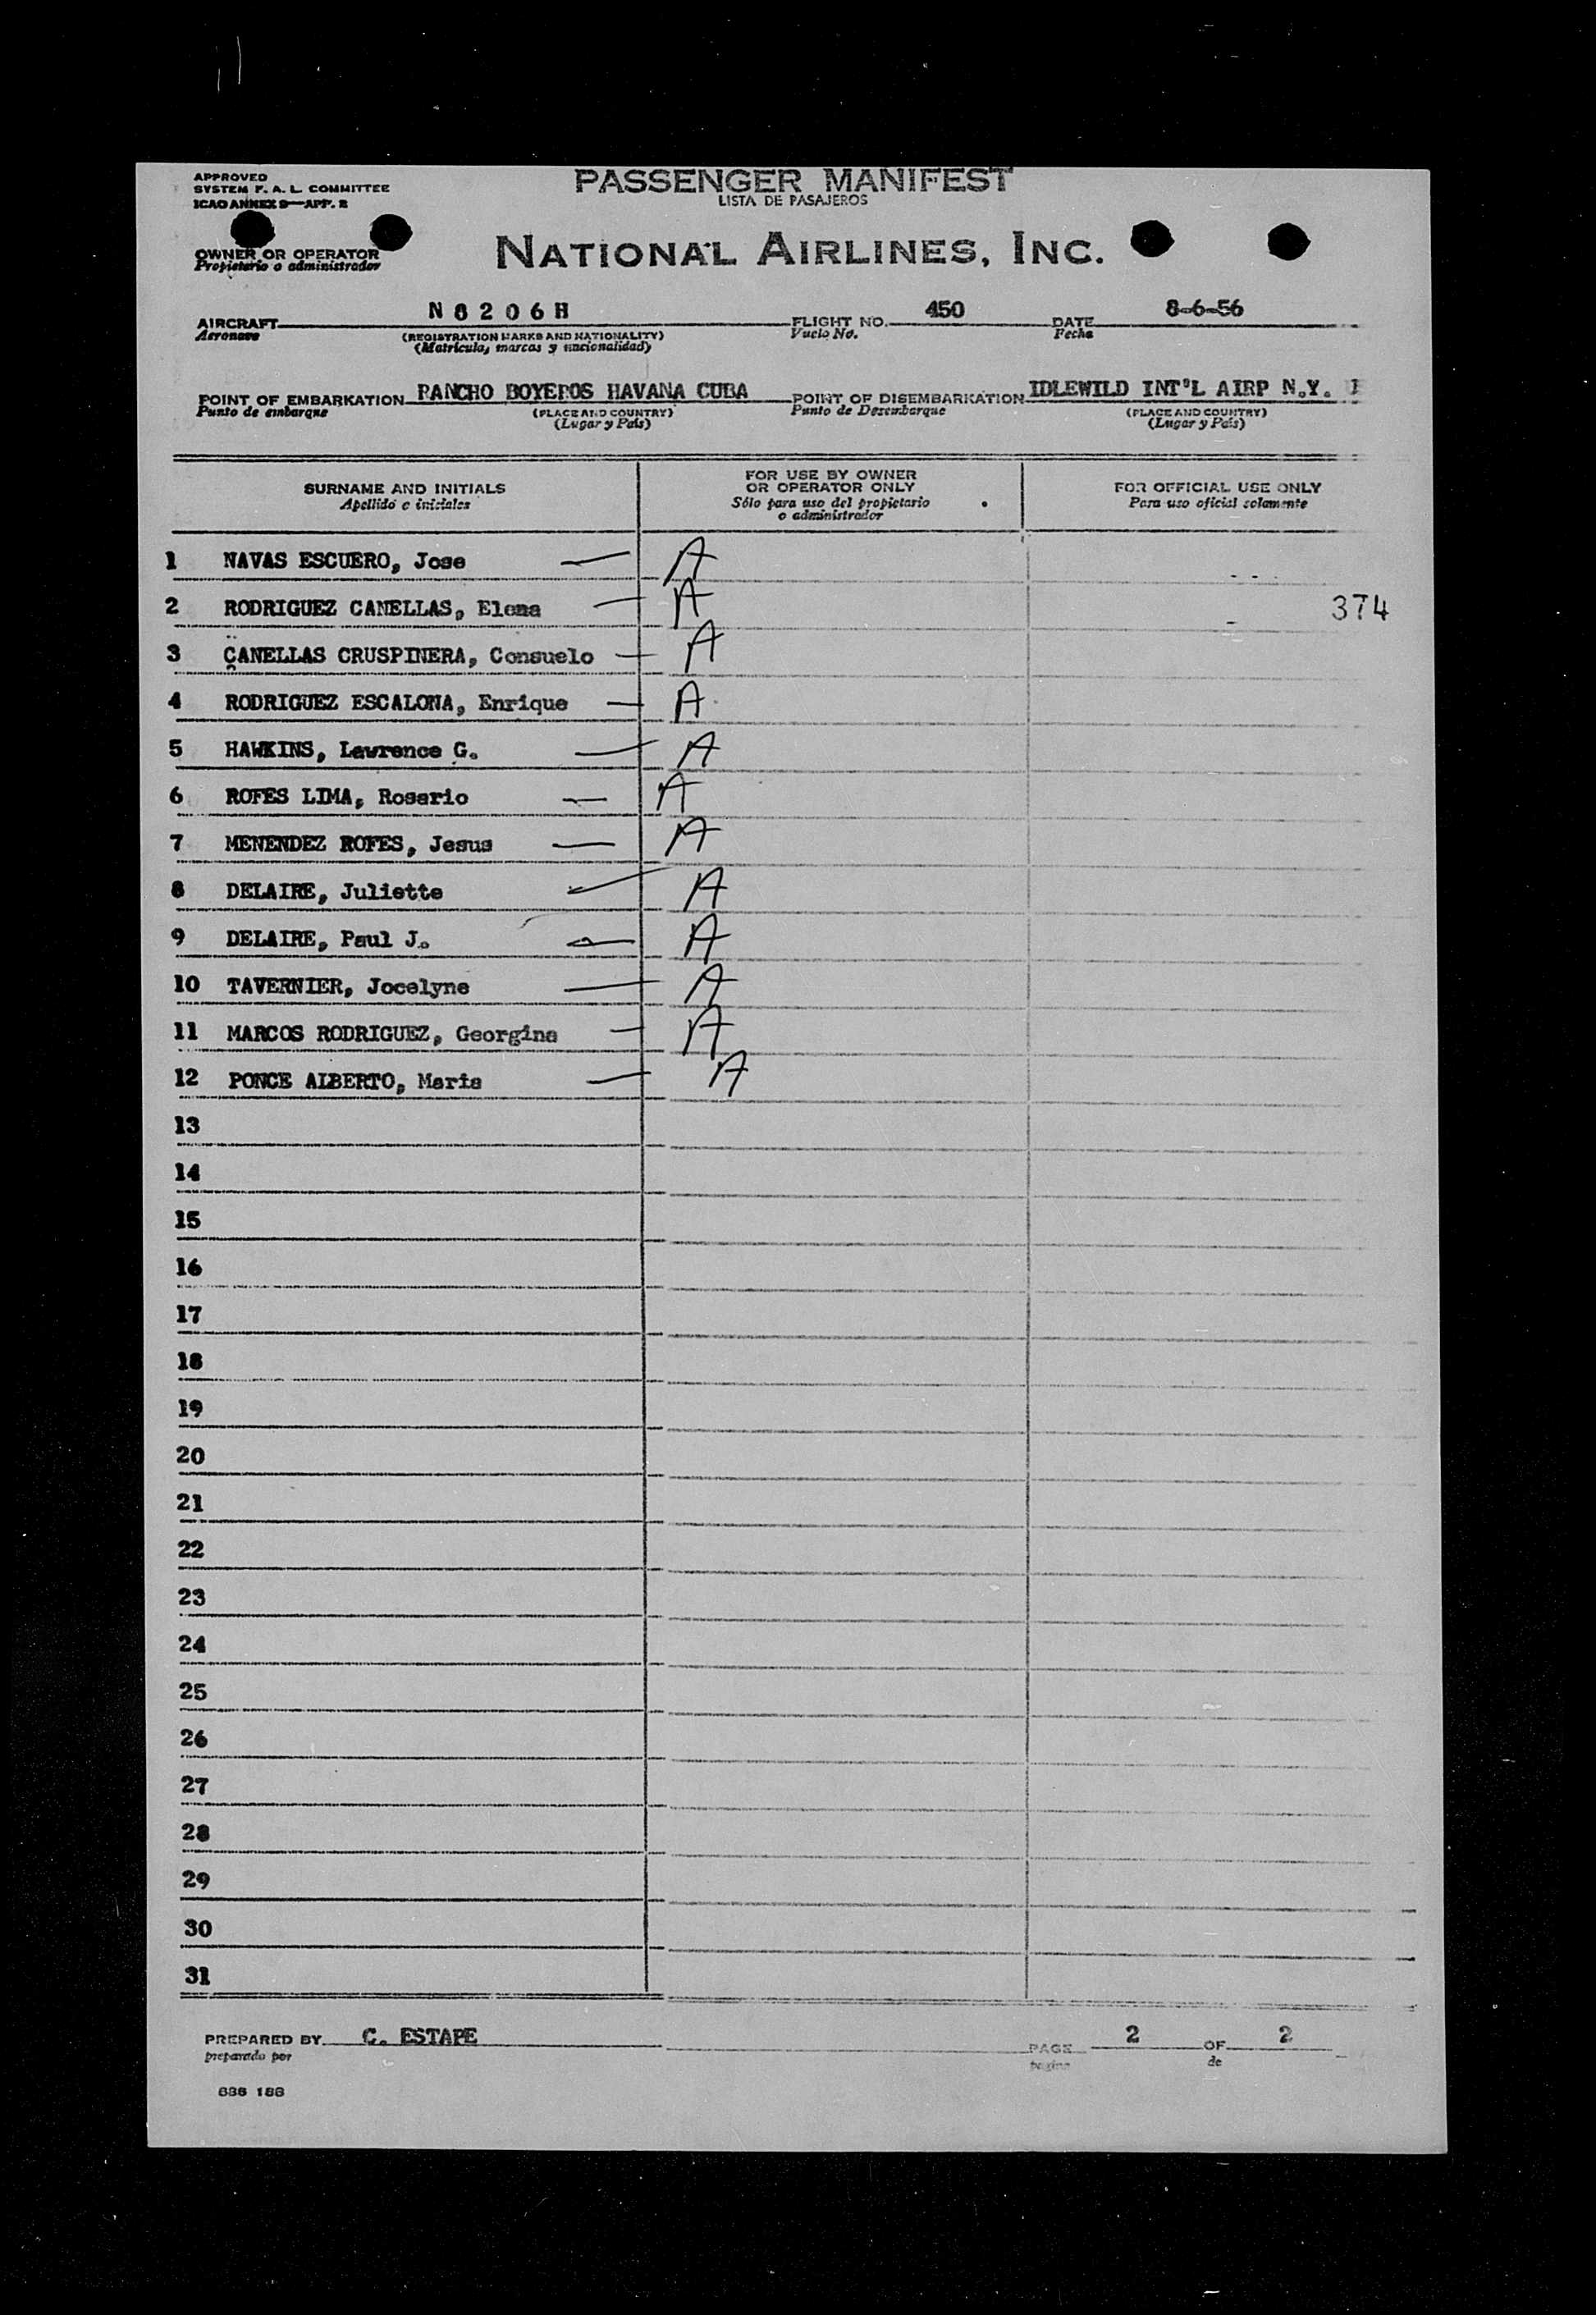 APPROVED
SYSTEM F. A. L. COMMITTEE
ICAO ANNEX 9—APP. 2
PASSENGER MANIFEST
LISTA DE PASAJEROS
OWNER OR OPERATOR
Propietario o administrador
NATIONAL AIRLINES, INC.
AIRCRAFT N 8 2 0 6 H FLIGHT NO. 450 DATE 8-6-56
Aeronave (REGISTRATION MARKS AND NATIONALITY) Vuelo No. Fecha
(Matricula, marcas y nacionalidad)
POINT OF EMBARKATION RANCHO BOYEROS HAVANA CUBA POINT OF DISEMBARKATION IDLEWILD INT'L AIRP N.Y.
Punto de embarque (PLACE AND COUNTRY) Punto de Desembarque (PLACE AND COUNTRY)
(Lugar y País) (Lugar y País)
SURNAME AND INITIALS FOR USE BY OWNER OR OPERATOR ONLY FOR OFFICIAL USE ONLY
Apellido e iniciales Sólo para uso del propietario o administrador Para uso oficial solamente
1 NAVAS ESCUERO, Jose — A
2 RODRIGUEZ CANELLAS, Elena — A 374
3 CANELLAS CRUSPINERA, Consuelo — A
4 RODRIGUEZ ESCALONA, Enrique — A
5 HAWKINS, Lawrence G. — A
6 ROFES LIMA, Rosario — A
7 MENENDEZ ROFES, Jesus — A
8 DELAIRE, Juliette — A
9 DELAIRE, Paul J. — A
10 TAVERNIER, Jocelyne — A
11 MARCOS RODRIGUEZ, Georgina — A
12 PONCE ALBERTO, Maria — A
13
14
15
16
17
18
19
20
21
22
23
24
25
26
27
28
29
30
31
PREPARED BY C. ESTAPE PAGE 2 OF 2
preparado por pagina de